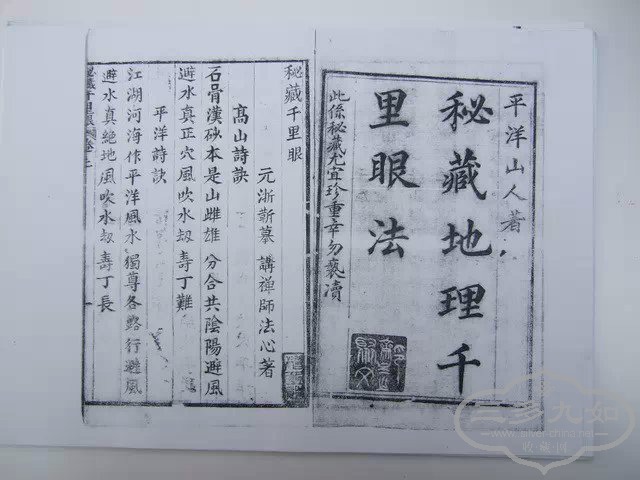 平洋山人著
秘藏地理千
里眼法
此係秘藏尤宜珍重幸勿褻瀆
秘藏千里眼
元浙蘄摹講禪師法心著
高山詩訣
石骨漢砂本是山雌雄分合共陰陽避風
避水真正穴風吹水劫壽丁難
平洋詩訣
江湖河海作平洋風水獨尊各路行避風
避水真絶地風吹水劫壽丁長
三多九如